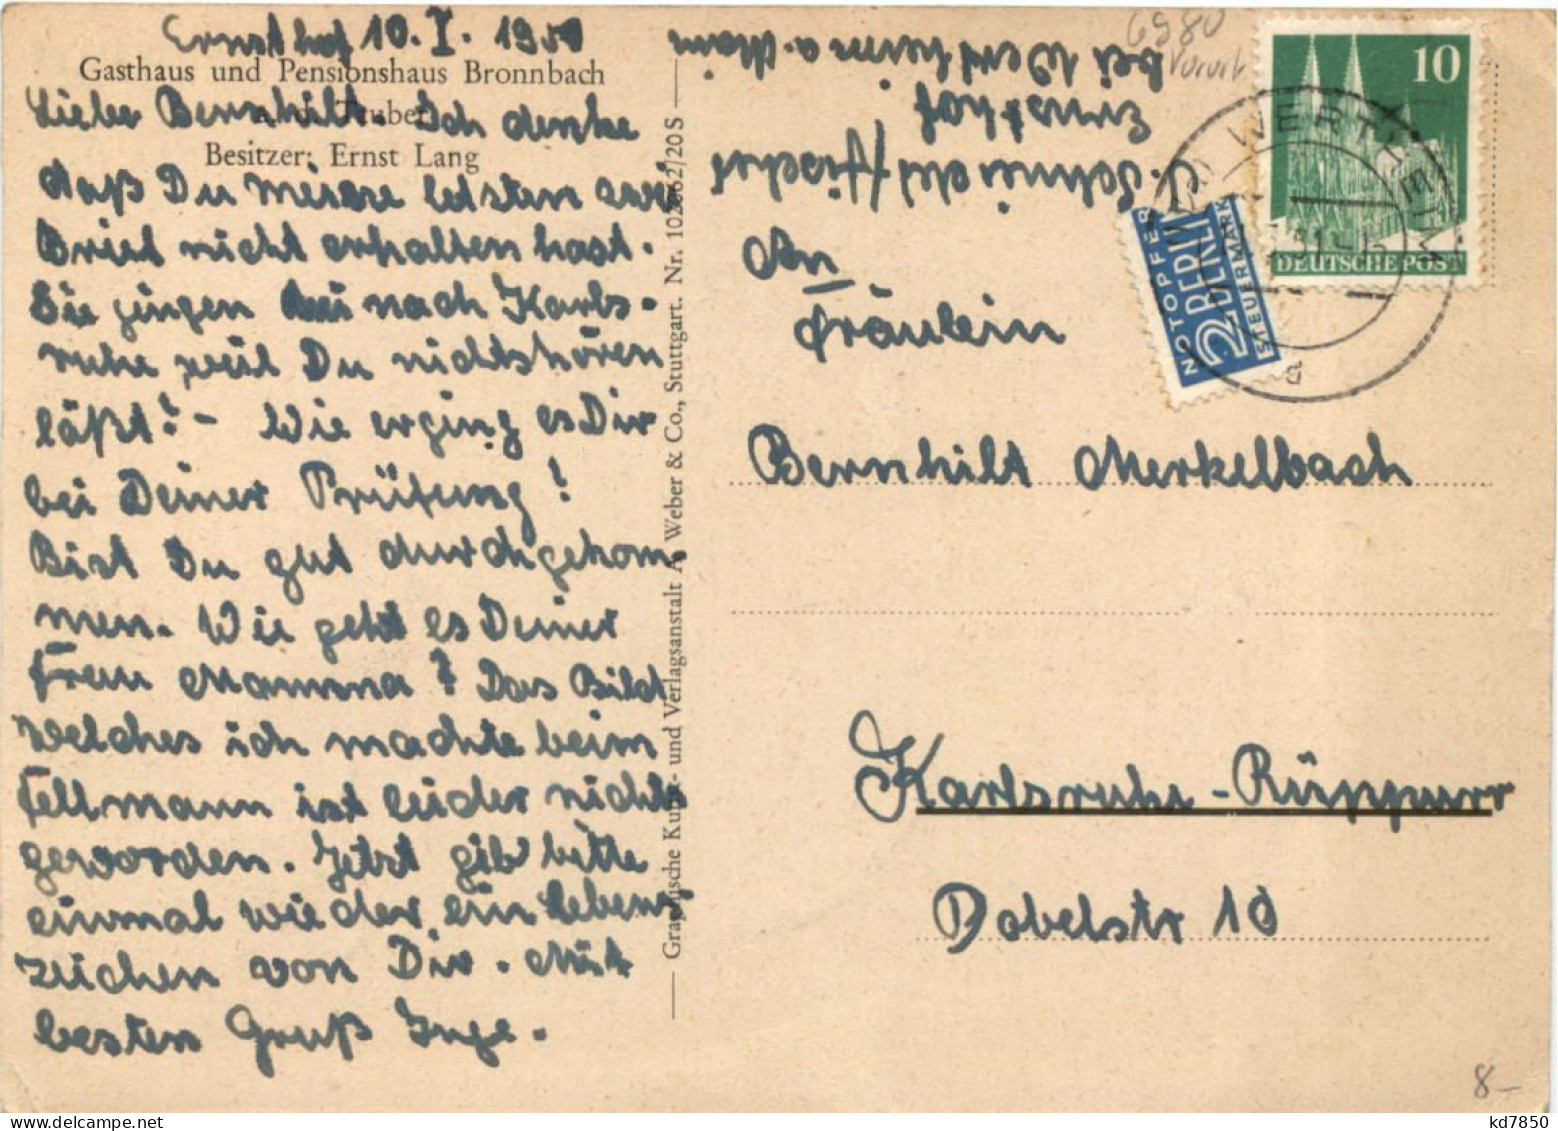 Ernsthof 10. I. 1951
Gasthaus und Pensionshaus Bronnbach
a. d. Tauber
Besitzer: Ernst Lang
Liebe Bernhilt. Ich denke
daß Du meine letsten
Brief nicht erhalten hast.
Sie gingen nach Karls-
ruhe weil Du nichts hören
läßt? - Wie erging es Dir
bei Deiner Prüfung!
Bist Du gut durchgekom-
men. Wie geht es Deiner
Frau Mamma? Das Bild
welches ich machte beim
Fellmann ist leider nichts
geworden. Jetzt gib bitte
einmal wieder ein Lebens-
zeichen von Dir. Mit
besten Gruß Inge.
Graphische Kunst- und Verlagsanstalt A. Weber & Co., Stuttgart. Nr. 102862/20 S
Ernsthof
bei Wertheim a. Main
6980
Vorort
10
DEUTSCHE POST
NOTOPFER
2 BERLIN
STEUERMARKE
WERTHEIM
a
An
Fräulein
Bernhilt Merkelbach
Karlsruhe-Rüppurr
Dobelstr 10
8-
kd7850